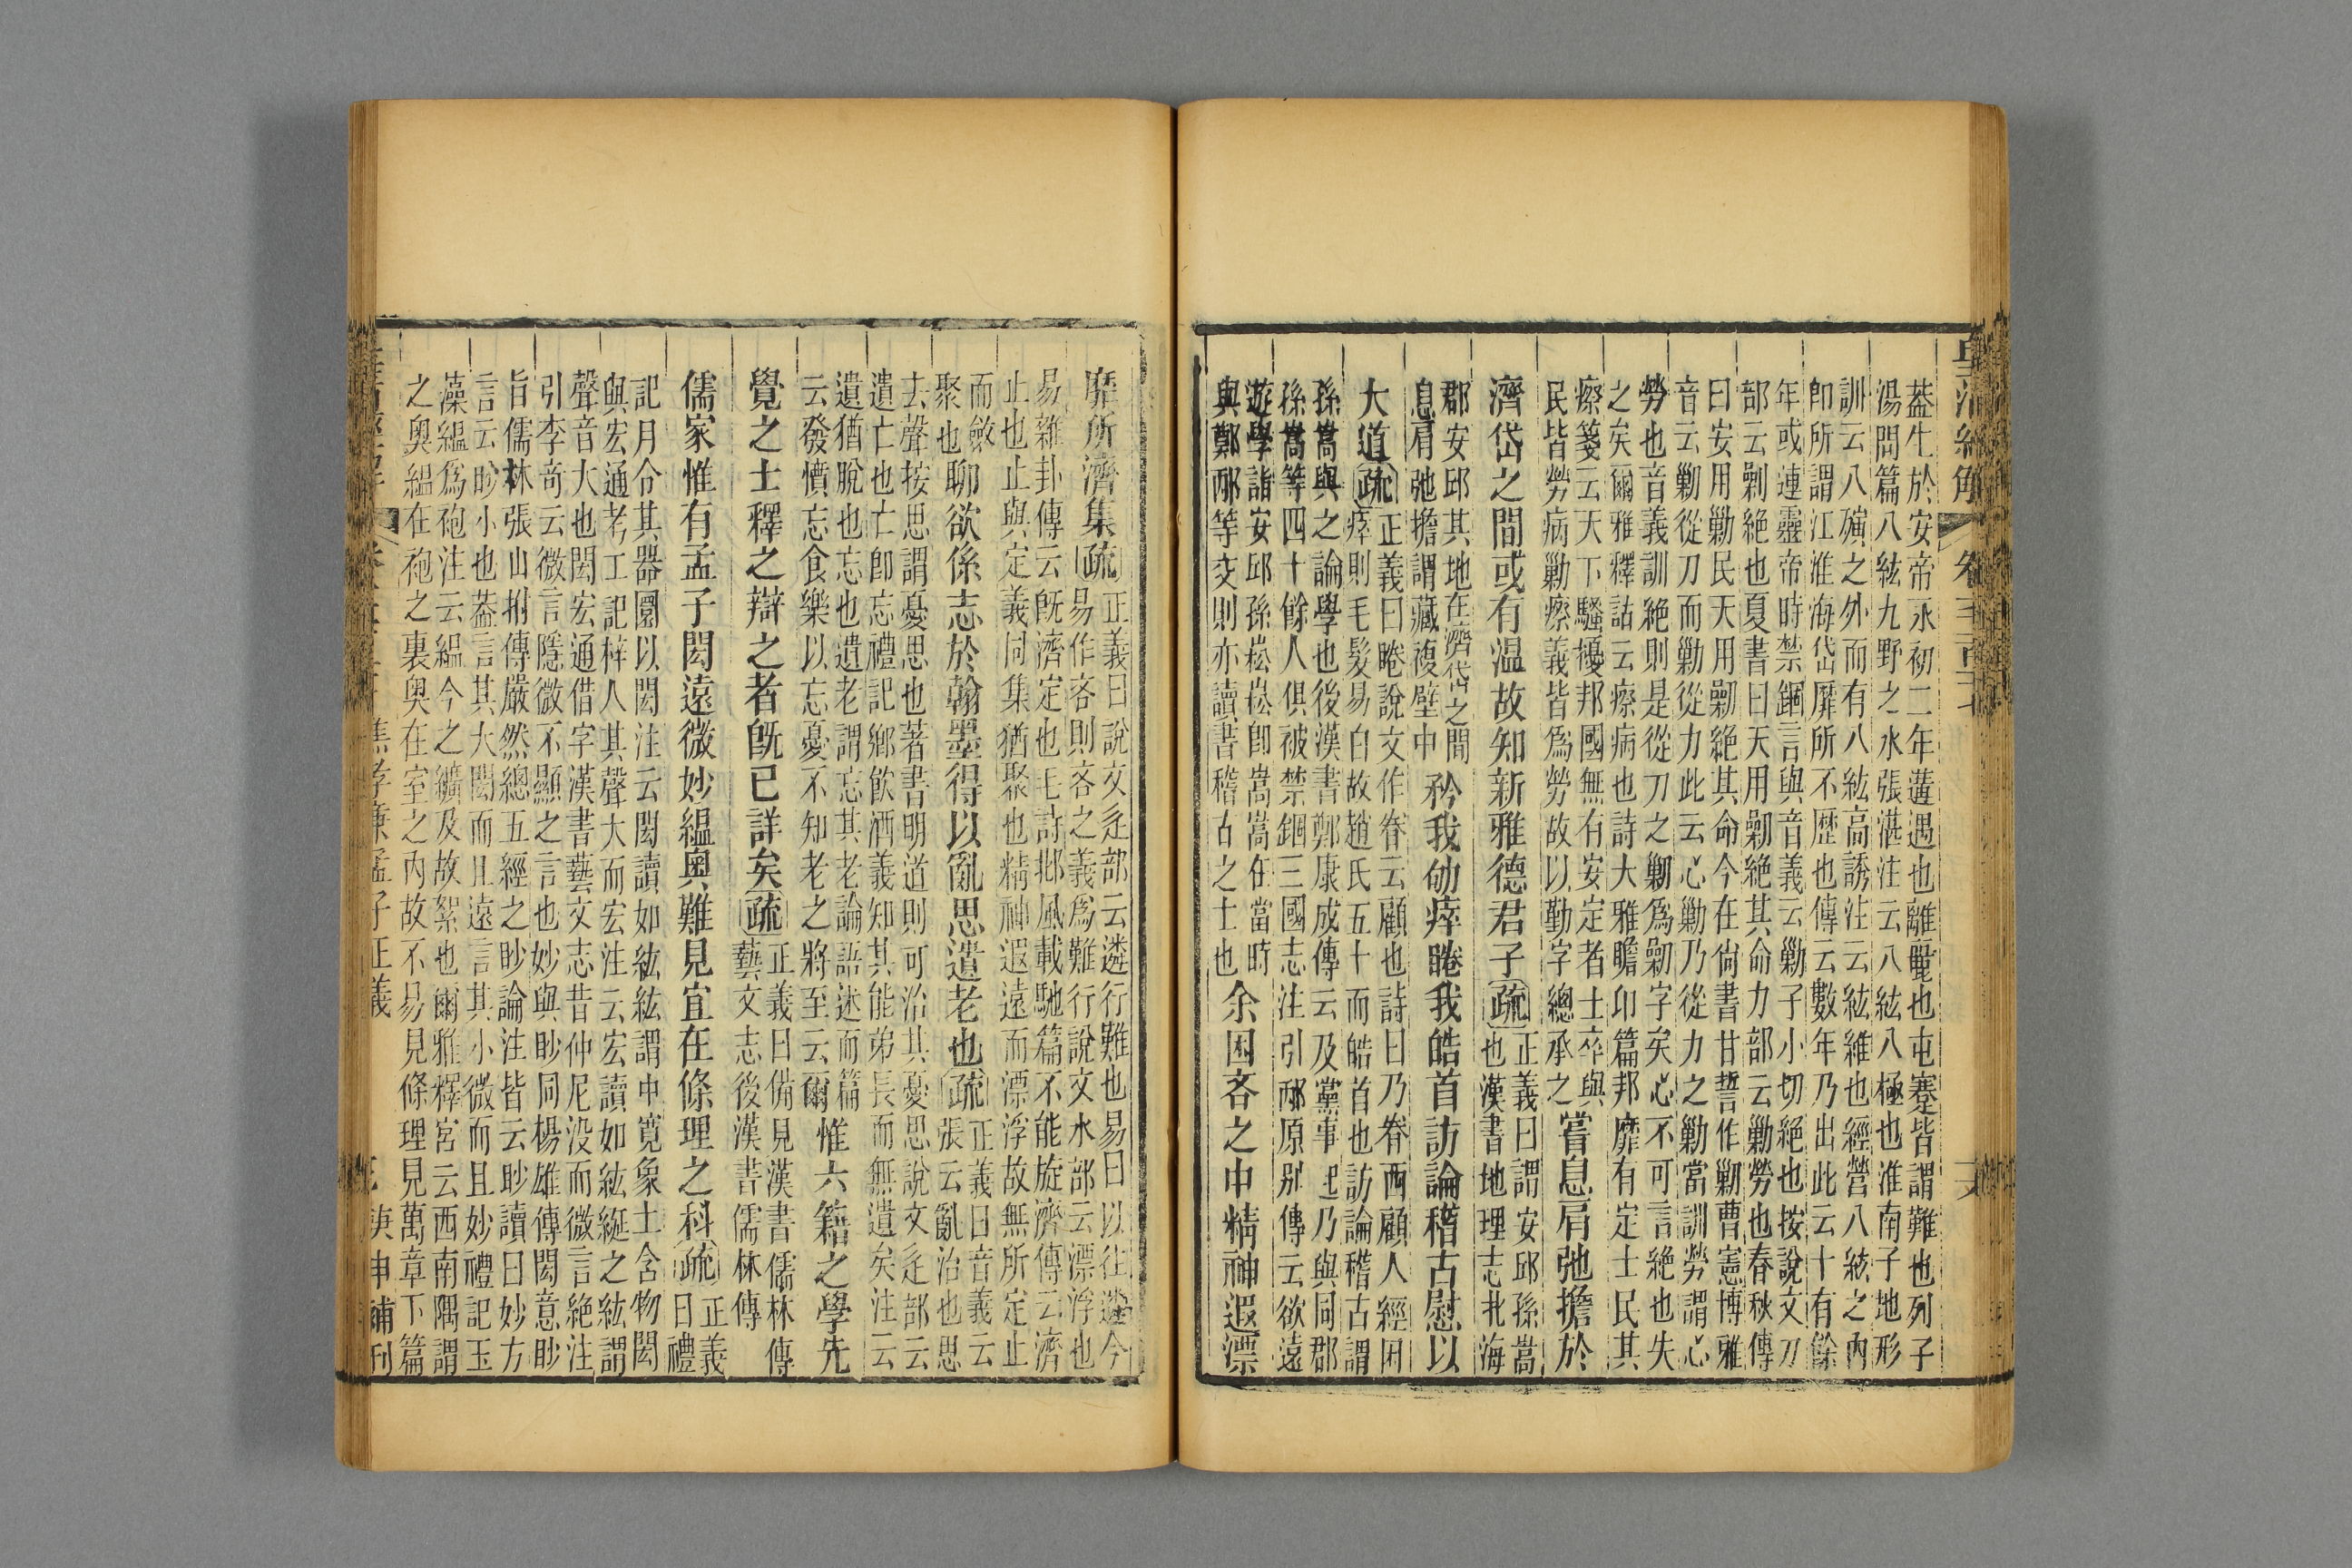 皇清經解
卷一千一百十七
蓋生於安帝永初二年遘遇也離罹也屯蹇皆謂難也列子
湯問篇八紘九野之水張湛注云八紘八極也淮南子地形
訓云八殥之外而有八紘高誘注云紘維也經營八紘之內
卽所謂江淮海岱靡所不歷也傳云數年乃出此云十有餘
年或連靈帝時禁錮言與音義云勦子小切絕也按說文刀
部云剿絕也夏書曰天用剿絕其命力部云勦勞也春秋傳
曰安用勦民天用剿絕其命今在尙書甘誓作勦曹憲博雅
音云勦從刀而勦從力此云心勦乃從力之勦當訓勞謂心
勞也音義訓絕則是從刀之剿爲剿字矣心不可言絕也失
之矣爾雅釋詁云瘵病也詩大雅瞻卬篇邦靡有定士民其
瘵箋云天下騷擾邦國無有安定者士卒與
民皆勞病勦瘵義皆爲勞故以勤字總承之
嘗息肩弛擔於
濟岱之間或有温故知新雅德君子疏
正義曰謂安邱孫嵩
也漢書地理志北海
郡安邱其地在濟岱之間
息肩弛擔謂藏複壁中
矜我劬瘁睠我皓首訪論稽古慰以
大道疏
正義曰睠說文作眷云顧也詩曰乃眷西顧人經困
瘁則毛髮易白故趙氏五十而皓首也訪論稽古謂
孫嵩與之論學也後漢書鄭康成傳云及黨事起乃與同郡
孫嵩等四十餘人俱被禁錮三國志注引邴原别傳云欲遠
遊學詣安邱孫崧崧卽嵩嵩在當時
與鄭邴等交則亦讀書稽古之士也
余困吝之中精神遐漂
靡所濟集疏
正義曰說文辵部云遴行難也易曰以往遴今
易作吝則吝之義爲難行說文水部云漂浮也
易雜卦傳云旣濟定也毛詩鄘風載馳篇不能旋濟傳云濟
止也止與定義同集猶聚也精神遐遠而漂浮故無所定止
而斂
聚也
聊欲係志於翰墨得以亂思遺老也疏
正義曰音義云
張云亂治也思
去聲按思謂憂思也著書明道則可治其憂思說文辵部云
遺亡也亡卽忘禮記鄉飲酒義知其能弟長而無遺矣注云
遺猶脫也忘也遺老謂忘其老論語述而篇
云發憤忘食樂以忘憂不知老之將至云爾
惟六籍之學先
覺之士釋之辯之者旣已詳矣疏
正義曰備見漢書儒林傳
藝文志後漢書儒林傳
儒家惟有孟子閎遠微妙縕奧難見宜在條理之科疏
正義
曰禮
記月令其器圜以閎注云閎讀如紘紘謂中寬象土含物閎
與宏通考工記梓人其聲大而宏注云宏讀如紘綖之紘謂
聲音大也閎宏通借字漢書藝文志昔仲尼没而微言絕注
引李奇云微言隱微不顯之言也妙與眇同楊雄傳閎意眇
旨儒林張山拊傳嚴然總五經之眇論注皆云眇讀曰妙方
言云眇小也蓋言其大閎而且遠言其小微而且妙禮記玉
藻縕爲袍注云縕今之纊及故絮也爾雅釋宮云西南隅謂
之奥縕在袍之裏奥在室之內故不易見條理見萬章下篇
焦孝廉孟子正義
庚申補刊